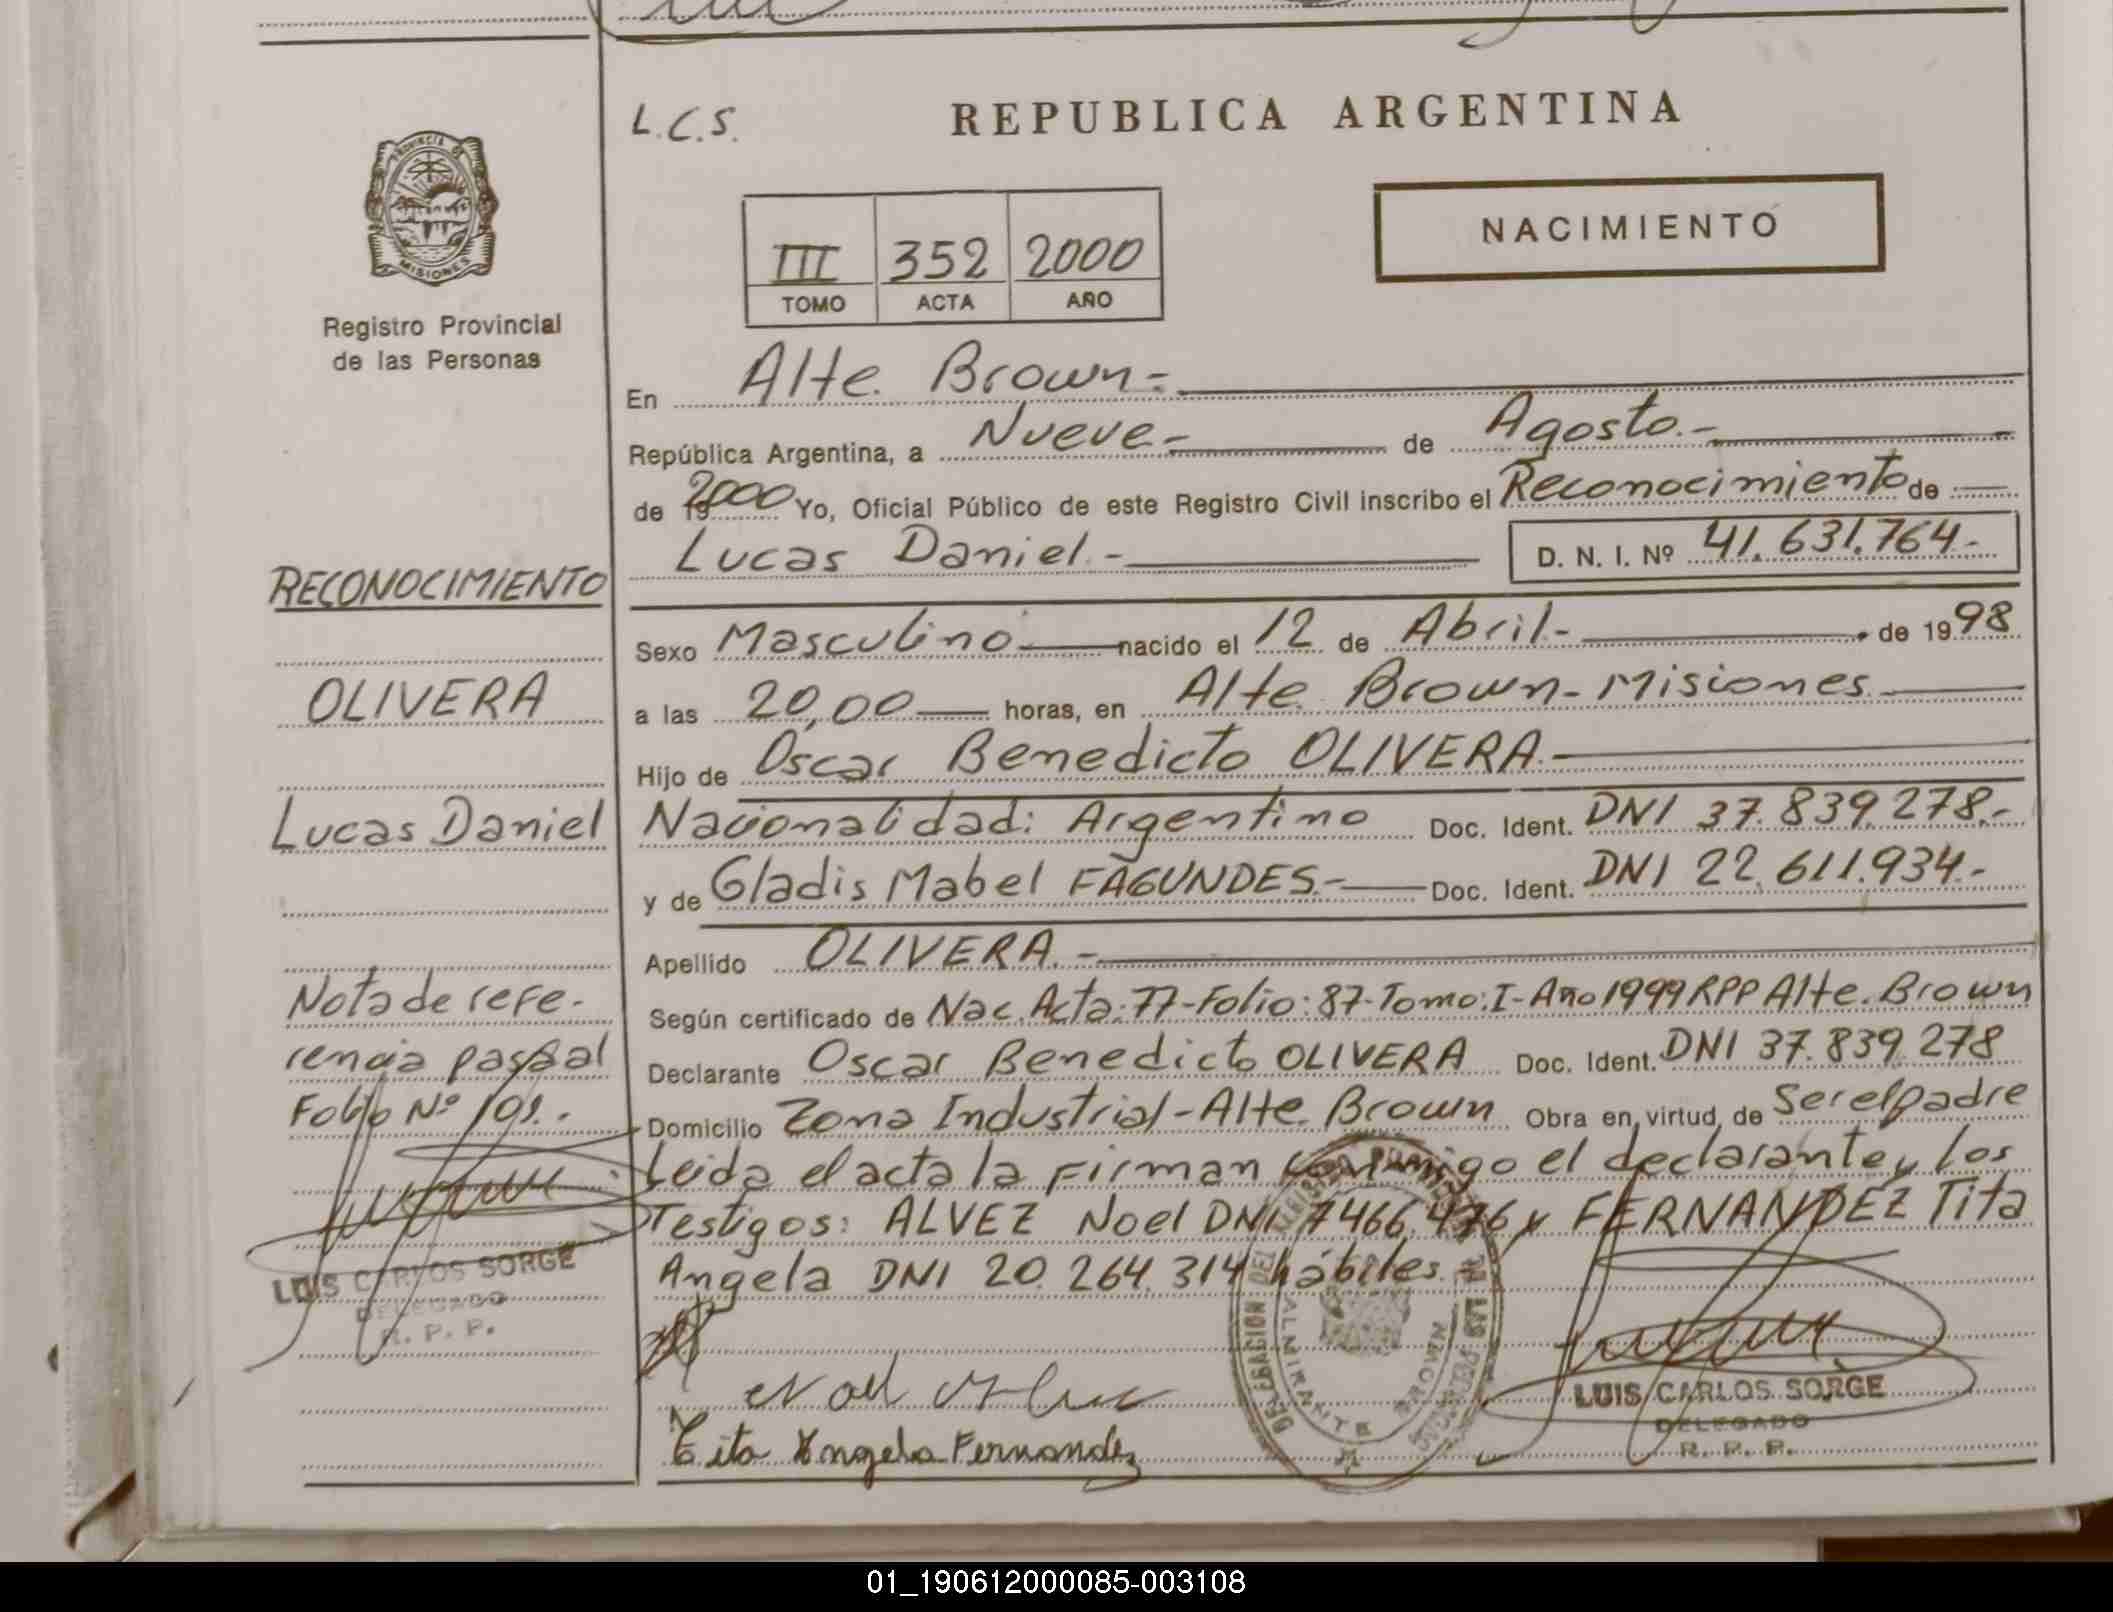 L.C.S.
REPUBLICA ARGENTINA
PROVINCIA DE
MISIONES
Registro Provincial
de las Personas
NACIMIENTO
III 352 2000
TOMO ACTA AÑO
En Alte. Brown.-
República Argentina, a Nueve.- de Agosto.-
de 19 2000 Yo, Oficial Público de este Registro Civil inscribo el Reconocimiento de
Lucas Daniel.- D. N. I. Nº 41.631.764.-
Sexo Masculino nacido el 12 de Abril.- de 1998
a las 20,00 horas, en Alte. Brown-Misiones
Hijo de Oscar Benedicto OLIVERA.
Nacionalidad: Argentino Doc. Ident. DNI 37.839.278.-
y de Gladis Mabel FAGUNDES.- Doc. Ident. DNI 22.611.934.-
Apellido OLIVERA.-
Según certificado de Nac. Acta:77-Folio:87-Tomo:I-Año 1999 RPP Alte. Brown
Declarante Oscar Benedicto OLIVERA Doc. Ident. DNI 37.839.278
Domicilio Zona Industrial-Alte. Brown Obra en virtud de Ser el padre
Leida el acta la firman conmigo el declarante y los
Testigos: ALVEZ Noel DNI 7466.476 y FERNANDEZ Tita
Angela DNI 20.264.314 hábiles.-
Tita Angela Fernandez
DELEGACION DEL REGISTRO PROVINCIAL DE LAS PERSONAS
ALMIRANTE BROWN
LUIS CARLOS SORGE
DELEGADO
R. P. P.
RECONOCIMIENTO
OLIVERA
Lucas Daniel
Nota de refe-
rencia pasa al
Folio Nº 109.-
LUIS CARLOS SORGE
DELEGADO
R. P. P.
01_190612000085-003108